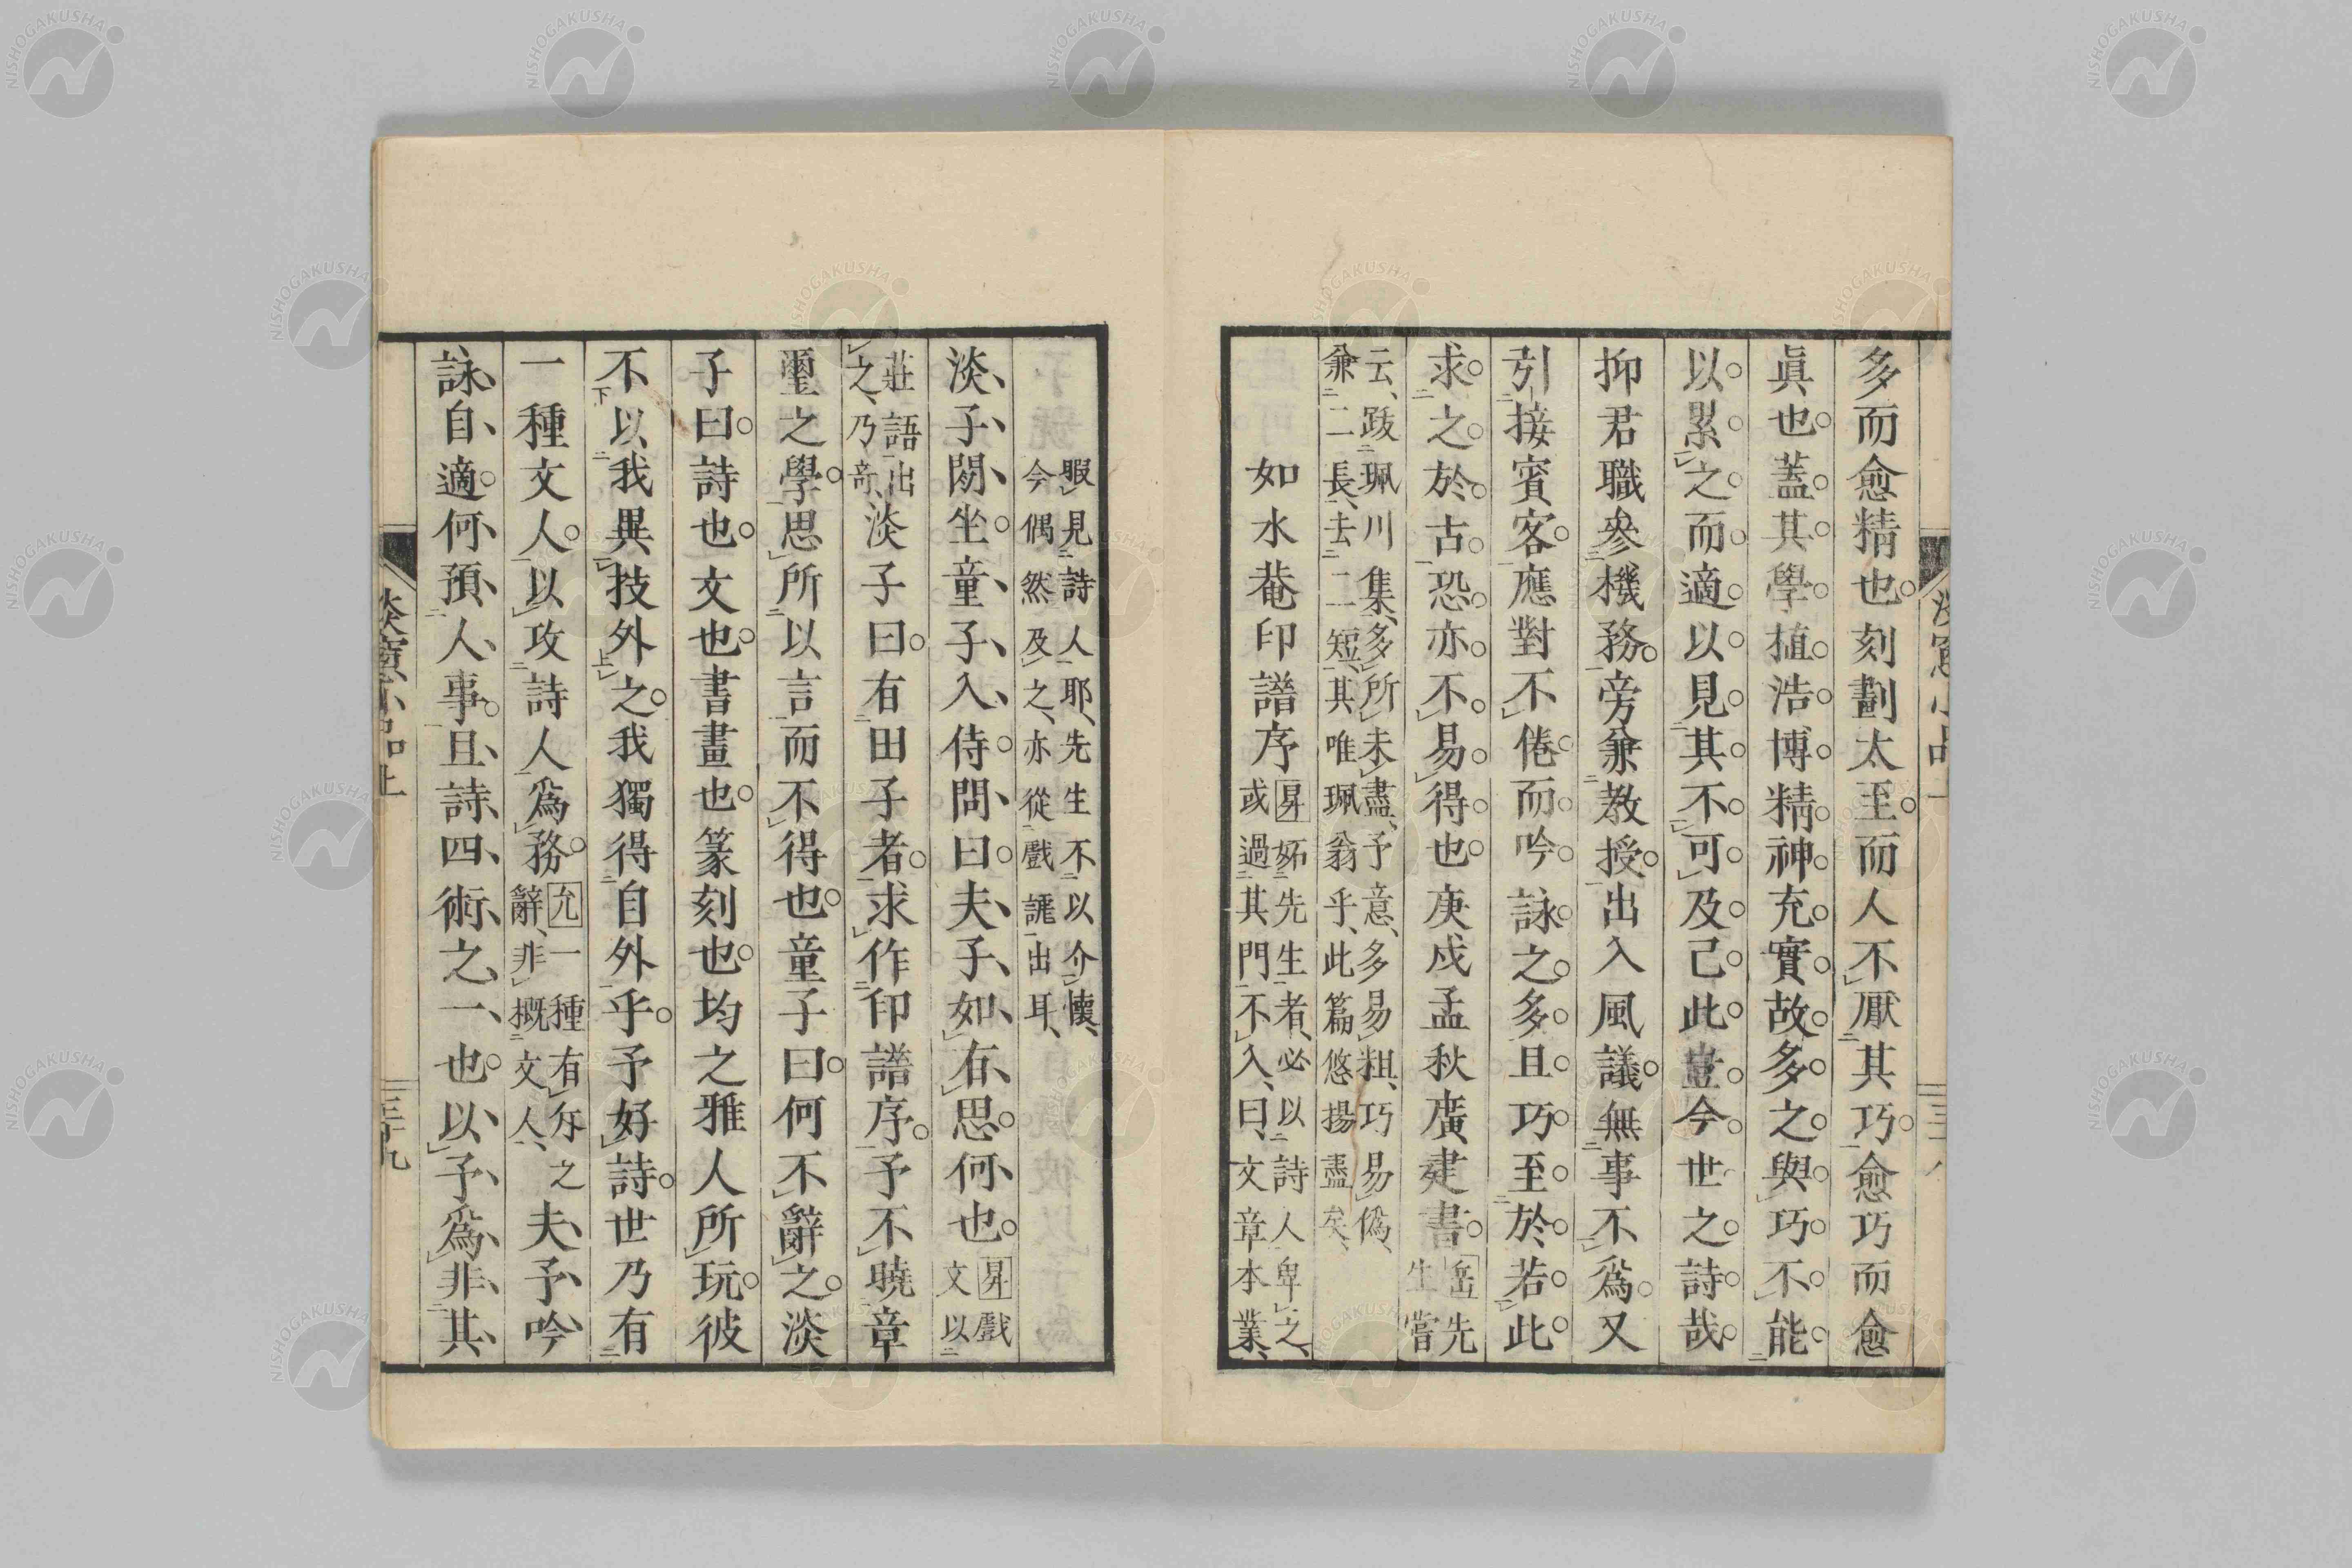 多而愈精也刻劃太至而人不厭其巧愈巧而愈
眞也蓋其學植浩博精神充實故多之與巧不能
以累之而適以見其不可及己此豈今世之詩哉
抑君職參機務旁兼教授出入風議無事不爲又
引接賓客應對不倦而吟詠之多且巧至於若此
求之於古恐亦不易得也庚戌孟秋廣建書 岳先
生嘗
云、跋珮川集、多所未盡、予意、多易粗、巧易僞、
兼二長、去二短、其唯珮翁乎、此篇悠揚盡矣、
如水菴印譜序 昇妬先生者、必以詩人卑之、
或過其門不入、曰、文章本業、
暇見詩人耶、先生不以介懷、
今偶然及之、亦從戲謔出耳、
淡子閑坐童子入侍問曰夫子如右思何也 昇戲
文以
莊語出
之、乃奇、
淡子曰有田子者求作印譜序予不曉章
璽之學思所以言而不得也童子曰何不辭之淡
子曰詩也文也書畫也篆刻也均之雅人所玩彼
不以我異技外之我獨得自外乎予好詩世乃有
一種文人以攻詩人爲務 允一種有斧之
辭、非概文人、
夫予吟
詠自適何預人事且詩四術之一也以予爲非其
淡窻小品上
三十九